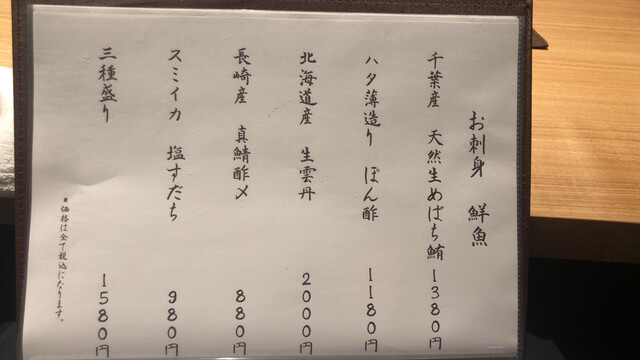 お刺身 鮮魚
千葉産 天然生めばち鮪 1380円
ハタ薄造り ぽん酢 1180円
北海道産 生雲丹 2000円
長崎産 真鯖酢〆 880円
スミイカ 塩すだち 980円
三種盛り 1580円
*価格は全て税込になります。